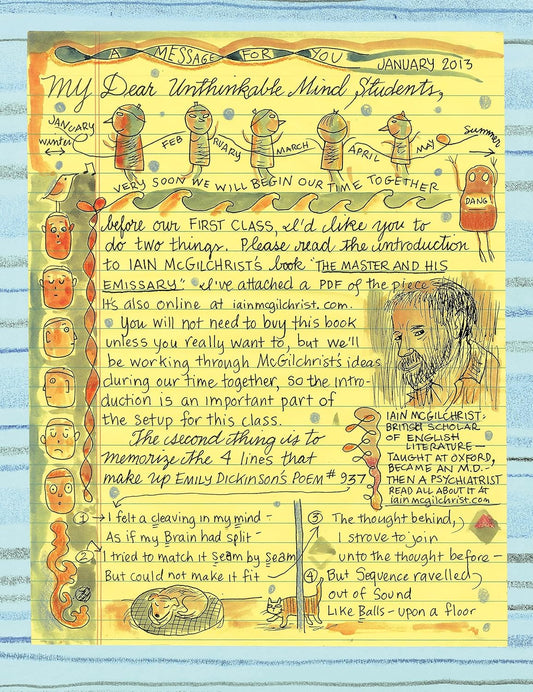 A MESSAGE FOR YOU
JANUARY 2013
My Dear Unthinkable Mind Students,
JANUARY
winter
FEB
RUARY
MARCH
APRIL
MAY
Summer
VERY SOON WE WILL BEGIN OUR TIME TOGETHER
DANG
before our FIRST CLASS, I'd like you to
do two things. Please read the introduction
to IAIN McGILCHRIST'S book "THE MASTER AND HIS
EMISSARY." I've attached a PDF of the piece
It's also online at iainmcgilchrist.com.
You will not need to buy this book
unless you really want to, but we'll
be working through McGilchrist's ideas
during our time together, so the intro-
duction is an important part of
the setup for this class.
The second thing is to
memorize the 4 lines that
make up EMILY DICKINSON'S POEM # 937
IAIN McGILCHRIST:
BRITISH SCHOLAR
OF ENGLISH
LITERATURE —
TAUGHT AT OXFORD,
BECAME AN M.D. -
THEN A PSYCHIATRIST
READ ALL ABOUT IT AT
iainmcgilchrist.com
1 I felt a cleaving in my mind -
As if my Brain had split -
2 I tried to match it seam by seam
But could not make it fit
3 The thought behind,
I strove to join
unto the thought before -
4 But Sequence ravelled
out of Sound
Like Balls - upon a floor